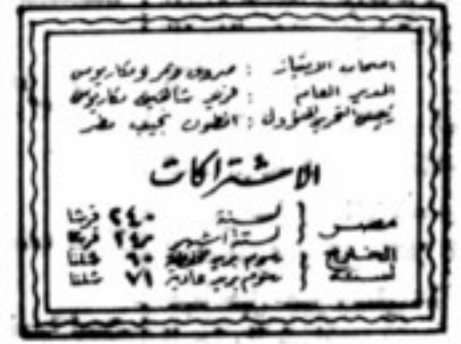 اصحاب الامتياز : صروف ونمر ومكاريوس
المدير العام : فريد شاهين مكاريوس
رئيس التحرير المسؤول : انطون نجيب مطر
الاشتراكات
مصر { لسنة ٢٤٠ قرشا
لستة اشهر
الخارج لسنة { برسوم بريد مخفضة ٦٠ شلنا
برسوم بريد عادية ٧١ شلنا